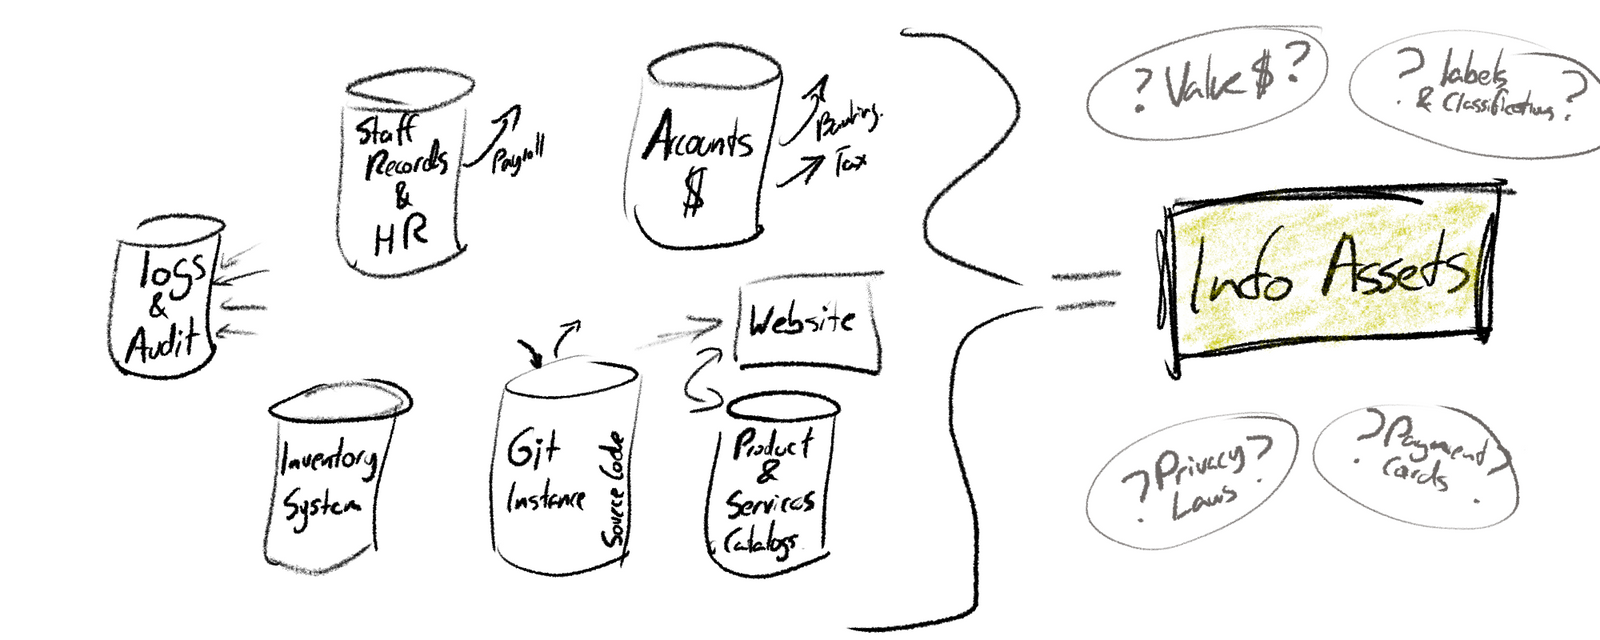 Staff
Records
&
HR
Payroll
Accounts
$
Banking.
Tax
logs
&
Audit
Website
Inventory
System
Git
Instance
Source Code
Product
&
Services
Catalogs
=
Info Assets
? Value $ ?
? labels ?
& Classification
? Privacy ?
Laws
? Payment ?
Cards